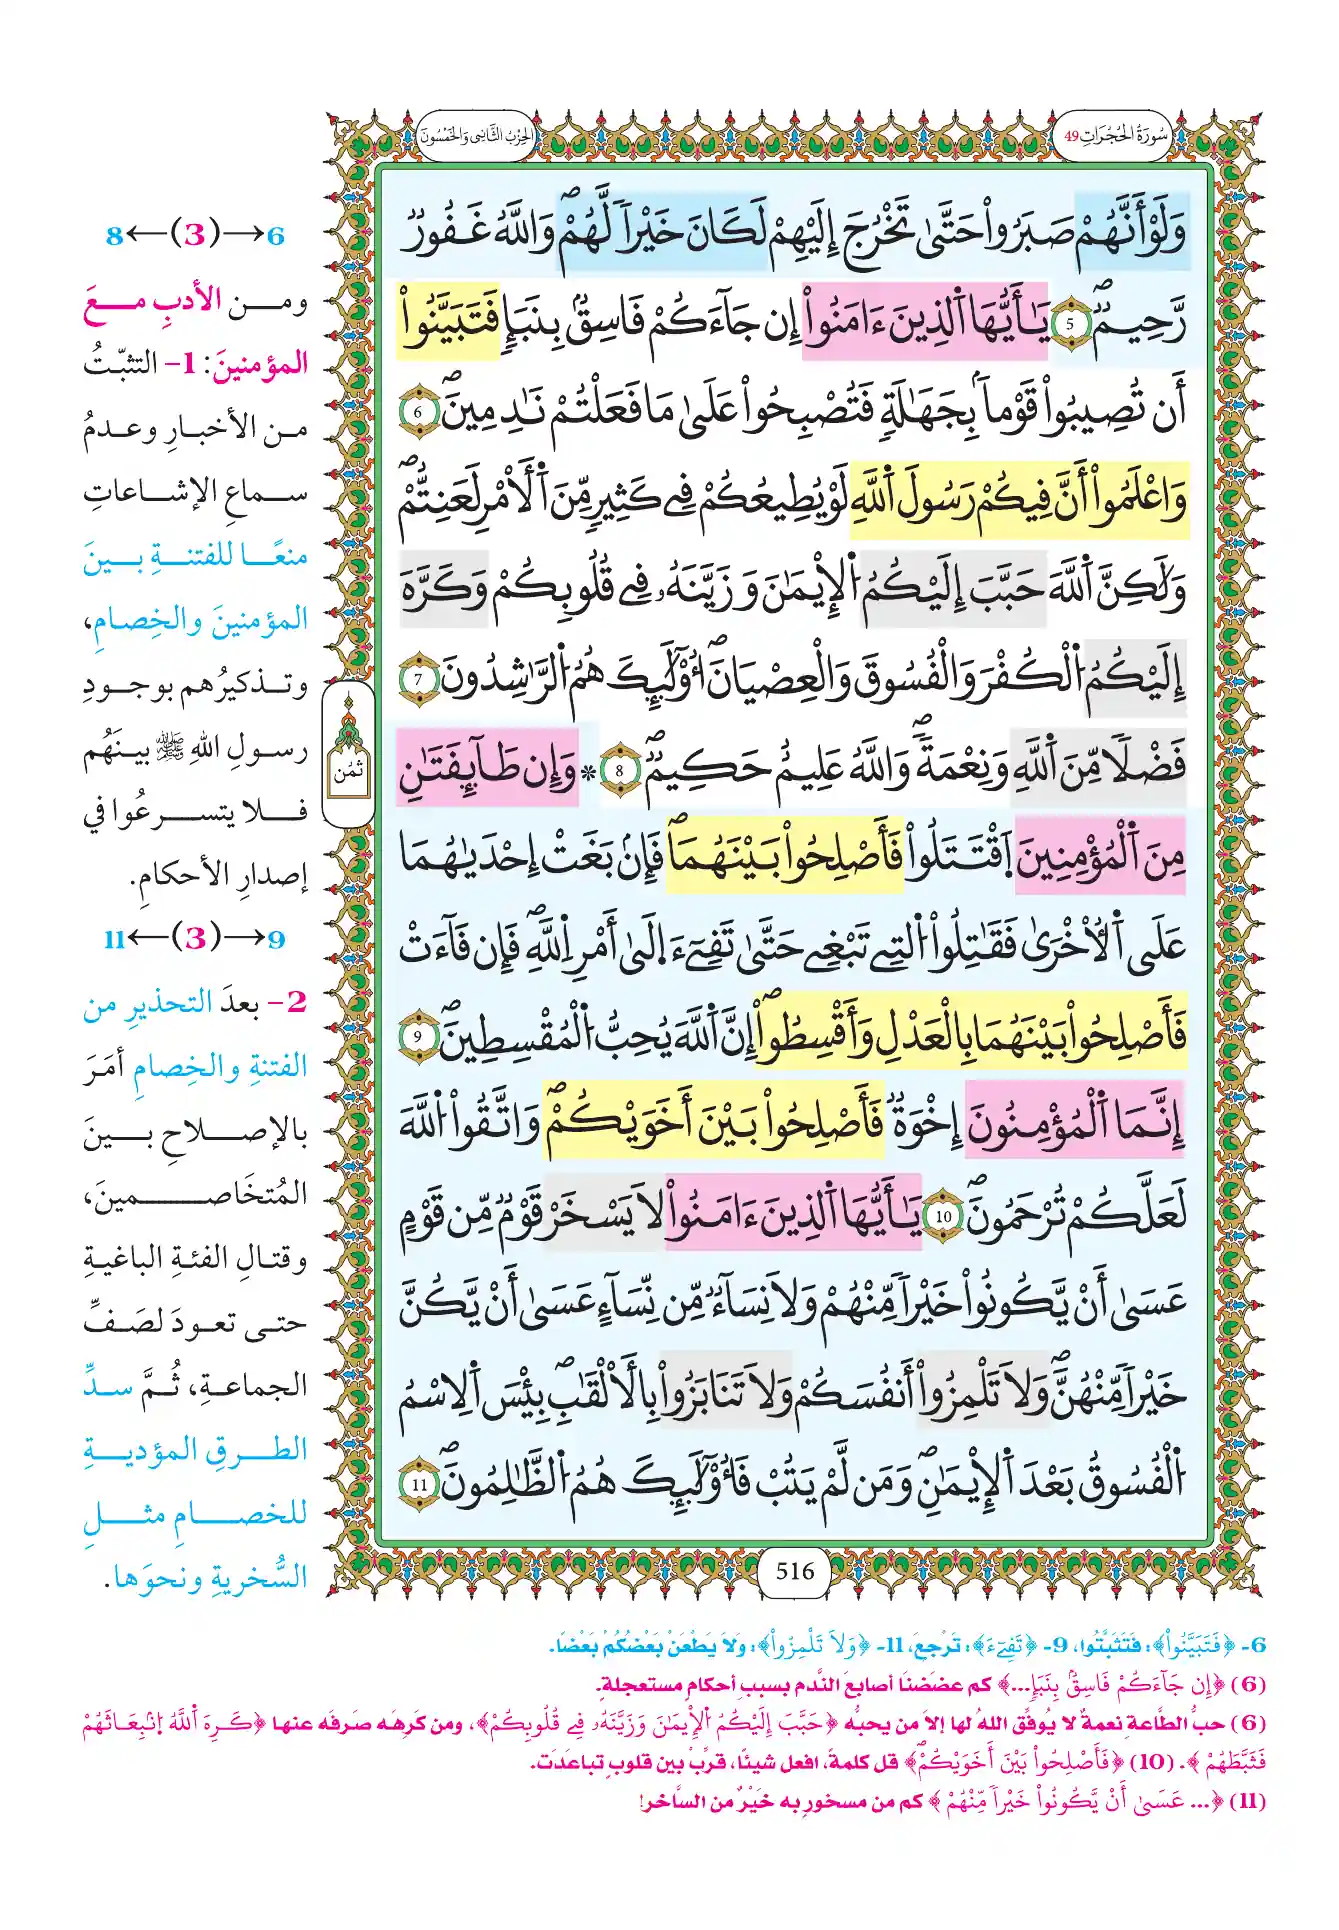 سُورَةُ الحُجُرَاتِ 49
الحِزْبُ الثَّانِي وَالخَمْسُونَ
وَلَوَ اَنَّهُمْ صَبَرُواْ حَتَّىٰ تَخْرُجَ إِلَيْهِمْ لَكَانَ خَيْراٗ لَّهُمْۖ وَاللَّهُ غَفُورٞ
رَّحِيمٞۖ 5 يَٰأَيُّهَا اَ۬لذِينَ ءَامَنُواْ إِن جَآءَكُمْ فَاسِقُۢ بِنَبَإٖ فَتَبَيَّنُواْ
أَن تُصِيبُواْ قَوْماَۢ بِجَهَٰلَةٖ فَتُصْبِحُواْ عَلَىٰ مَا فَعَلْتُمْ نَٰدِمِينَۖ 6
وَاعْلَمُواْ أَنَّ فِيكُمْ رَسُولَ اَ۬للَّهِ لَوْ يُطِيعُكُمْ فِے كَثِيرٖ مِّنَ اَ۬لَامْرِ لَعَنِتُّمْۖ
وَلَٰكِنَّ اَ۬للَّهَ حَبَّبَ إِلَيْكُمُ اُ۬لِايمَٰنَ وَزَيَّنَهُۥ فِے قُلُوبِكُمْ وَكَرَّهَ
إِلَيْكُمُ اُ۬لْكُفْرَ وَالْفُسُوقَ وَالْعِصْيَانَۖ أُوْلَٰٓئِكَ هُمُ اُ۬لرَّٰشِدُونَ 7
فَضْلاٗ مِّنَ اَ۬للَّهِ وَنِعْمَةٗۖ وَاللَّهُ عَلِيمٌ حَكِيمٞۖ 8 ۞ وَإِن طَآئِفَتَٰنِ
مِنَ اَ۬لْمُؤْمِنِينَ اَ۪قْتَتَلُواْ فَأَصْلِحُواْ بَيْنَهُمَاۖ فَإِنۢ بَغَتِ اِحْدَيٰهُمَا
عَلَى اَ۬لُاخْرَىٰ فَقَٰتِلُواْ اُ۬لتِے تَبْغِے حَتَّىٰ تَفِےٓءَ اِ۪لَىٰٓ أَمْرِ اِ۬للَّهِۖ فَإِن فَآءَتْ
فَأَصْلِحُواْ بَيْنَهُمَا بِالْعَدْلِ وَأَقْسِطُوٓاْۖ إِنَّ اَ۬للَّهَ يُحِبُّ اُ۬لْمُقْسِطِينَۖ 9
إِنَّمَا اَ۬لْمُؤْمِنُونَ إِخْوَةٞ فَأَصْلِحُواْ بَيْنَ أَخَوَيْكُمْۖ وَاتَّقُواْ اُ۬للَّهَ
لَعَلَّكُمْ تُرْحَمُونَۖ 10 يَٰأَيُّهَا اَ۬لذِينَ ءَامَنُواْ لَا يَسْخَرْ قَوْمٞ مِّن قَوْمٍ
عَسَىٰٓ أَنْ يَّكُونُواْ خَيْراٗ مِّنْهُمْ وَلَا نِسَآءٞ مِّن نِّسَآءٍ عَسَىٰٓ أَنْ يَّكُنَّ
خَيْراٗ مِّنْهُنَّۖ وَلَا تَلْمِزُوٓاْ أَنفُسَكُمْ وَلَا تَنَابَزُواْ بِالَالْقَٰبِۖ بِئْسَ اَ۬لِاسْمُ
اُ۬لْفُسُوقُ بَعْدَ اَ۬لِايمَٰنِۖ وَمَن لَّمْ يَتُبْ فَأُوْلَٰٓئِكَ هُمُ اُ۬لظَّٰلِمُونَۖ 11
ثُمُن
516
6→(3)←8
ومن الأدبِ معَ
المؤمنينَ: 1- التثبّتُ
من الأخبارِ وعدمُ
سماعِ الإشاعاتِ
منعًا للفتنةِ بينَ
المؤمنينَ والخِصامِ،
وتذكيرُهم بوجودِ
رسولِ اللهِ ﷺ بينَهُم
فلا يتسرعُوا في
إصدارِ الأحكامِ.
9→(3)←11
2- بعدَ التحذيرِ من
الفتنةِ والخِصامِ أمَرَ
بالإصلاحِ بينَ
المُتخَاصمينَ،
وقتالِ الفئةِ الباغيةِ
حتى تعودَ لصَفِّ
الجماعةِ، ثُمَّ سدِّ
الطرقِ المؤديةِ
للخصامِ مثلِ
السُّخريةِ ونحوَها.
6- ﴿فَتَبَيَّنُواْ﴾: فَتَثَبَّتُوا، 9- ﴿تَفِےٓءَ﴾: تَرْجِعَ، 11- ﴿وَلَا تَلْمِزُوٓاْ﴾: وَلَا يَطْعَنْ بَعْضُكُمْ بَعْضًا.
(6) ﴿إِن جَآءَكُمْ فَاسِقُۢ بِنَبَإٖ...﴾ كم عضضنَا أصابعَ النَّدم بسببِ أحكامٍ مستعجلةٍ.
(6) حبُّ الطَّاعةِ نعمةٌ لا يُوفِّق اللهُ لها إلا من يحبُّه ﴿حَبَّبَ إِلَيْكُمُ اُ۬لِايمَٰنَ وَزَيَّنَهُۥ فِے قُلُوبِكُمْ﴾، ومن كَرِهَه صَرفَه عنها ﴿كَرِهَ اَ۬للَّهُ اُ۪نۢبِعَاثَهُمْ
فَثَبَّطَهُمْ﴾. (10) ﴿فَأَصْلِحُواْ بَيْنَ أَخَوَيْكُمْۖ﴾ قل كلمةً، افعل شيئًا، قرِّبْ بين قلوبٍ تباعَدَت.
(11) ﴿... عَسَىٰٓ أَنْ يَّكُونُواْ خَيْراٗ مِّنْهُمْ﴾ كم من مسخورٍ به خَيْرٌ من السَّاخرِ!